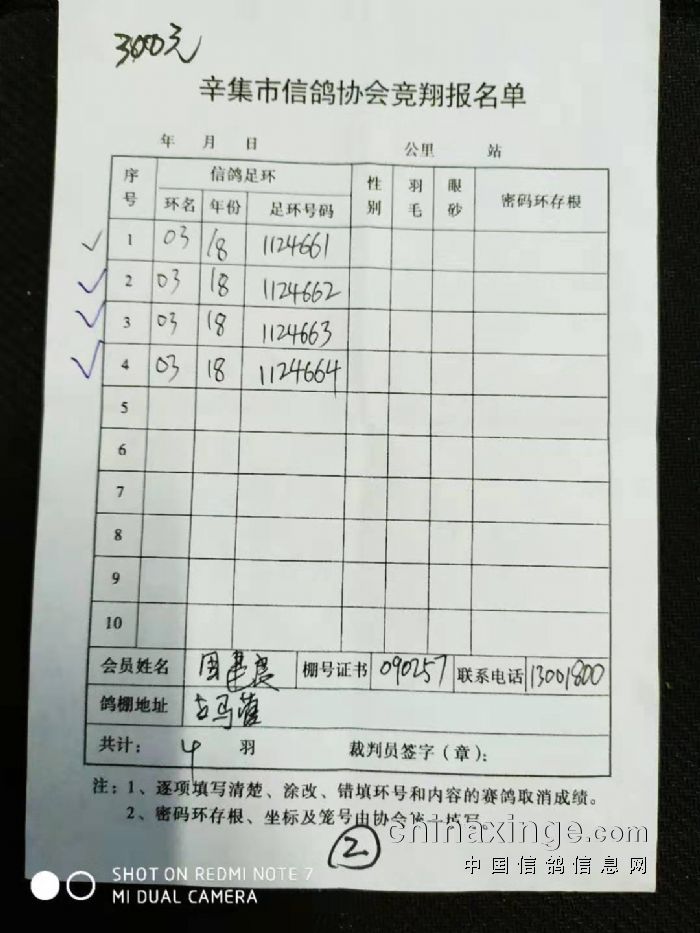 3000元
辛集市信鸽协会竞翔报名单
年 月 日 公里 站
序号 信鸽足环 性别 羽毛 眼砂 密码环存根
环名 年份 足环号码
1 03 18 1124661
2 03 18 1124662
3 03 18 1124663
4 03 18 1124664
5
6
7
8
9
10
会员姓名 周建良 棚号证书 090257 联系电话 13001800
鸽棚地址 马
共计: 4 羽 裁判员签字(章):
注:1、逐项填写清楚、涂改、错填环号和内容的赛鸽取消成绩。
2、密码环存根、坐标及笼号由协会统一填写。
2
chinaxinge.com
中国信鸽信息网
SHOT ON REDMI NOTE 7
MI DUAL CAMERA